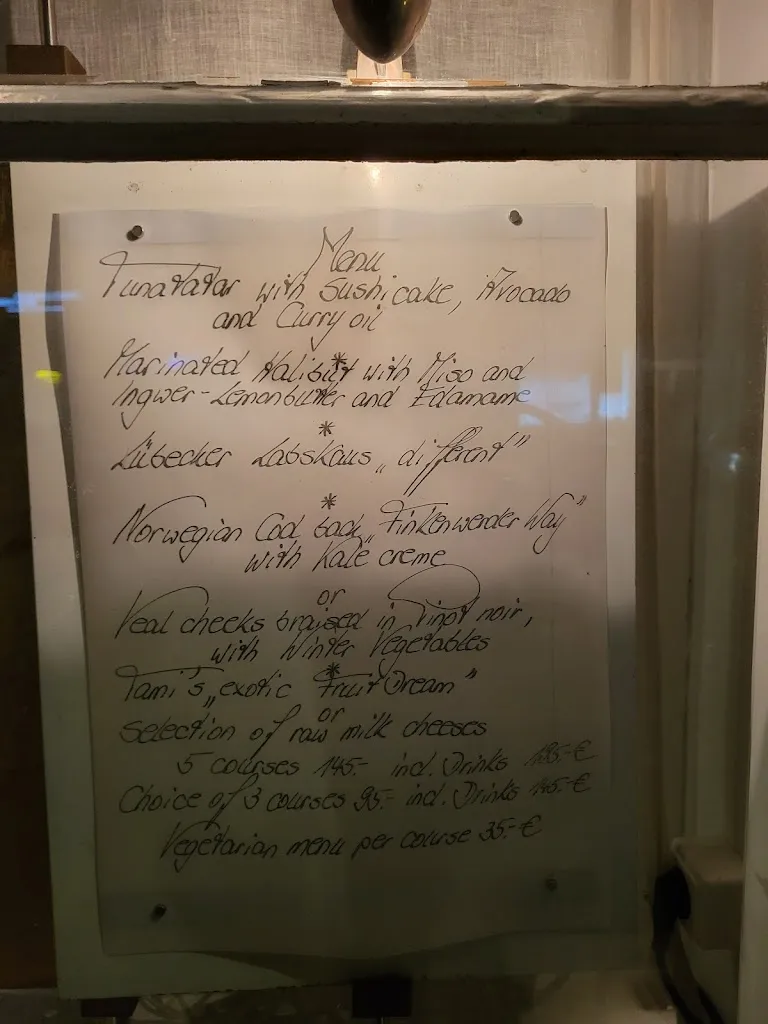 Menu
Tunatatar with Sushi cake, Avocado
and Curry oil
*
Marinated Halibut with Miso and
Ingwer-Lemonbutter and Edamame
*
Lübecker Labskaus „different"
*
Norwegian Cod back „Finkenwerder Way"
with Kale creme
or
Veal cheeks braised in Pinot noir,
with Winter Vegetables
*
Tami's „exotic Fruit Dream"
or
Selection of raw milk cheeses
5 courses 145.- incl. Drinks 195.-€
Choice of 3 courses 95.- incl. Drinks 145.-€
Vegetarian menu per course 35.-€